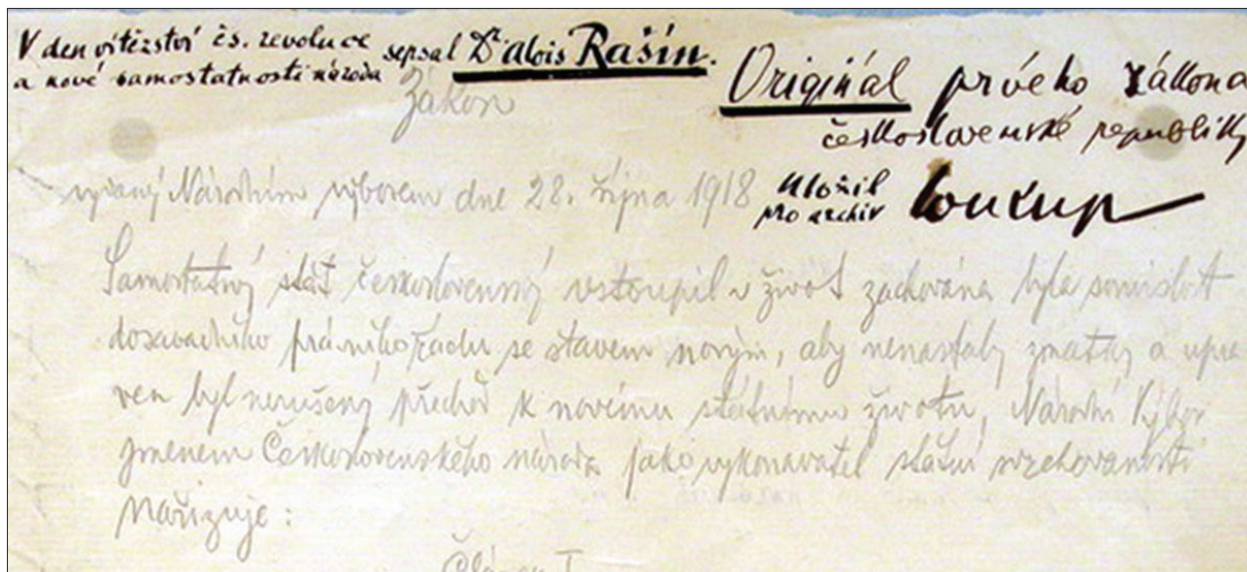 V den vítězství čs. revoluce
a nové samostatnosti národa
sepsal Dr Alois Rašín.
Originál prvého zákona
československé republiky
uložil
pro archiv
Soukup
Zákon
vydaný Národním výborem dne 28. října 1918
Samostatný stát československý vstoupil v život zachována byla souvislost
dosavadního právního řádu se stavem novým, aby nenastaly zmatky a upra
ven byl nerušený přechod k novému státnímu životu, Národní Výbor
jmenem Československého národa jako vykonavatel státní svrchovanosti
nařizuje:
Článek I